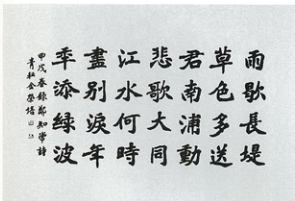 雨歇長堤
草色多送
君南浦動
悲歌大同
江水何時
盡別淚年
秊添綠波
甲戌春錄鄭知常詩